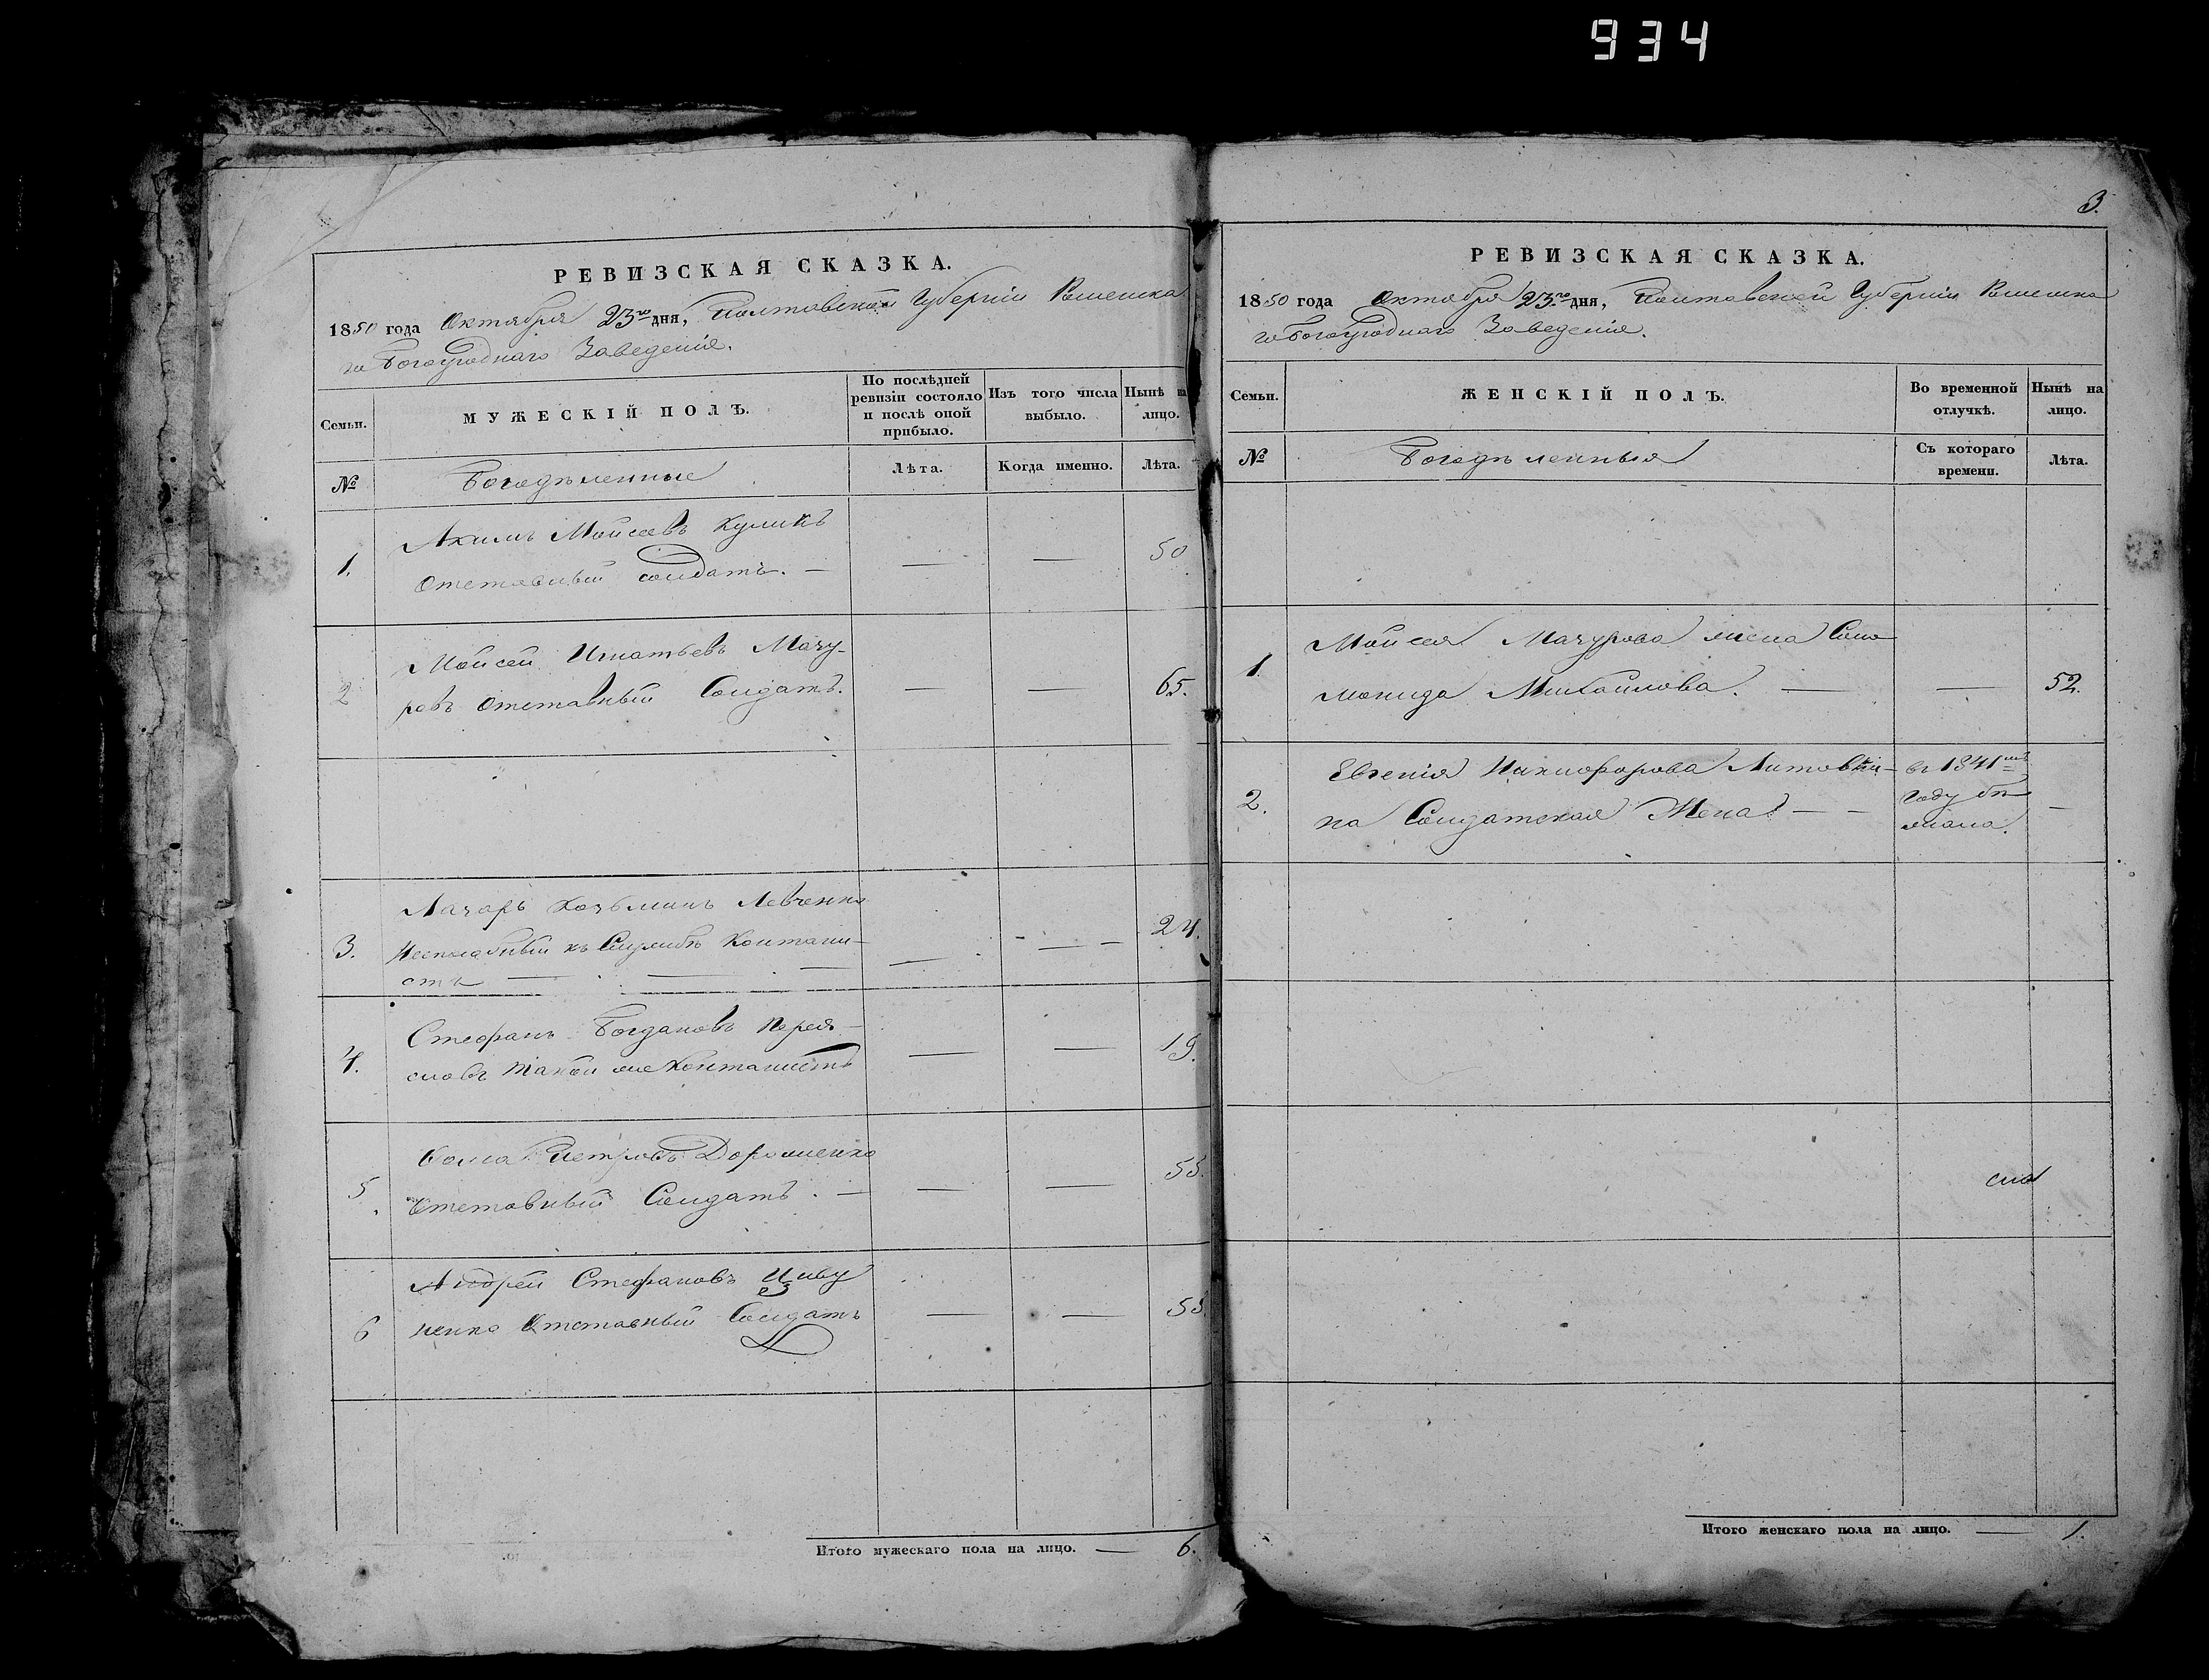 934
РЕВИЗСКАЯ СКАЗКА.
1850 года Октября 23го дня, Полтавской Губерніи Роменска
го Богоугоднаго Заведенія.
Семьи.
МУЖЕСКІЙ ПОЛЪ.
По послѣдней ревизіи состояло и послѣ оной прибыло.
Изъ того числа выбыло.
Нынѣ на лицо.
№
Богадѣленные
Лѣта.
Когда именно.
Лѣта.
1.
Акимъ Мойсеевъ Куликъ
Отставный солдатъ. —
— — 50
2
Мойсей Игнатьевъ Мачу-
ровъ Отставный Солдатъ.
— — 65.
3.
Лазарь Козьминъ Левченко
Неспособный къ Службѣ Кантони-
стъ —
— — 24.
4.
Стефанъ Богдановъ
такой же Кантонистъ
— — 19.
5.
Фома Петровъ Дорошенко
Отставный Солдатъ. —
— — 55.
6
Андрей Стефановъ
ненко Отставный Солдатъ
— — 55.
Итого мужескаго пола на лицо. — 6.
3.
РЕВИЗСКАЯ СКАЗКА.
1850 года Октября 23го дня, Полтавской Губерніи Роменска
го Богоугоднаго Заведенія.
Семьи.
ЖЕНСКІЙ ПОЛЪ.
Во временной отлучкѣ.
Нынѣ на лицо.
№
Богадѣленныя
Съ котораго времени.
Лѣта.
1.
Мойсея Мачурова жена Соло
монида Михайлова. —
— 52.
2.
Евгенія Никифорова Литовки-
на Солдатская Жена. — —
въ 1841мъ
году
—
Итого женскаго пола на лицо. — 1.